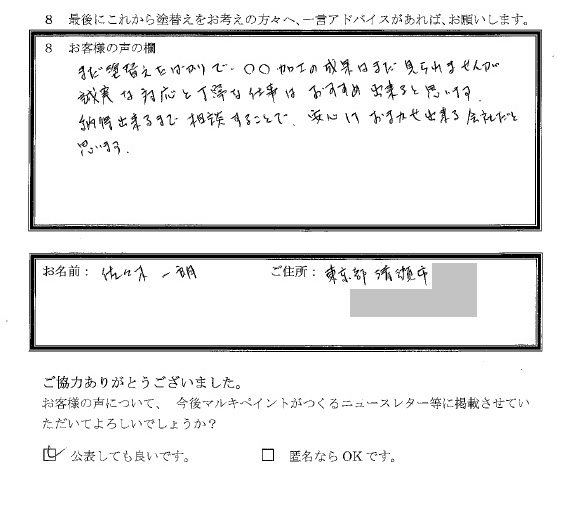 8 最後にこれから塗替えをお考えの方々へ、一言アドバイスがあれば、お願いします。
8 お客様の声の欄
まだ塗替えたばかりで、〇〇加工の成果はまだ見られませんが
誠実な対応と丁寧な仕事はおすすめ出来ると思います。
納得出来るまで相談することで、安心しておまかせ出来る会社だと
思います。
お名前： 佐々木 一朗 ご住所： 東京都清瀬市
ご協力ありがとうございました。
お客様の声について、 今後マルキペイントがつくるニュースレター等に掲載させてい
ただいてよろしいでしょうか？
公表しても良いです。 匿名なら OK です。